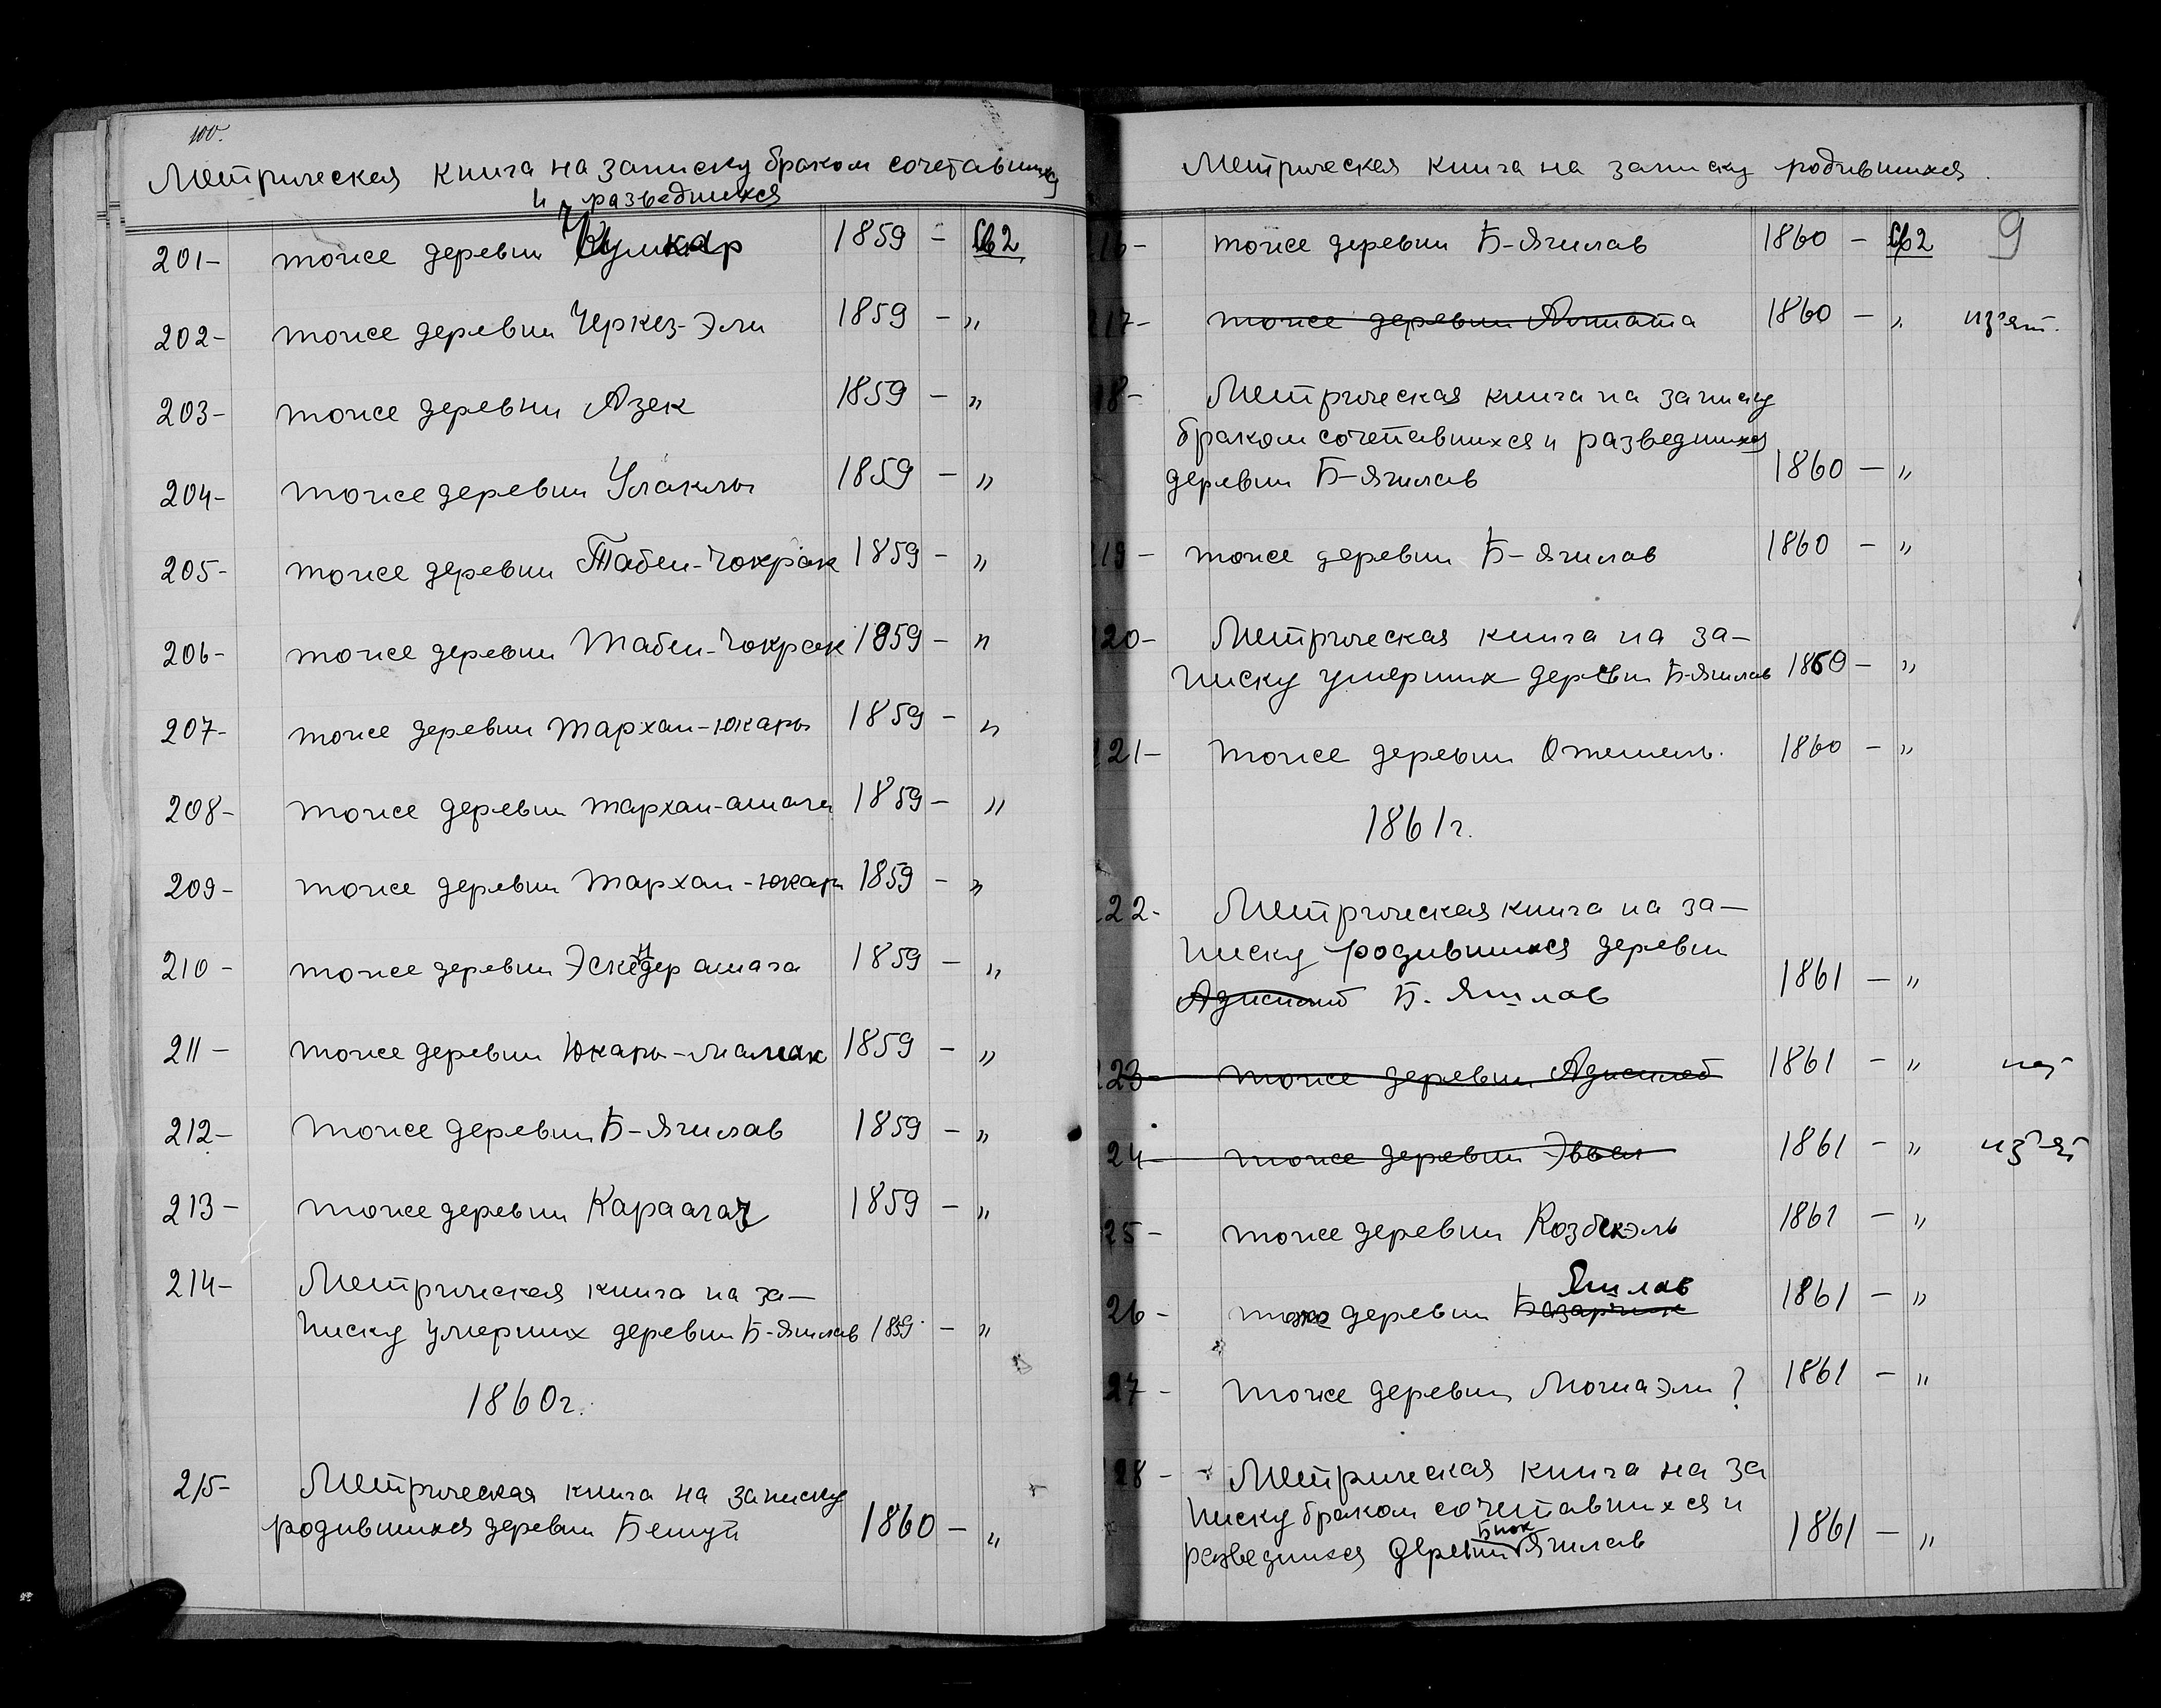 100.
Метрическая книга на записку браком сочетавшихся
и разведшихся
201- тоже деревни 1859 - Св2
202- тоже деревни Черкез-Эли 1859 - "
203- тоже деревни Азек 1859 - "
204- тоже деревни Улаклы 1859 - "
205- тоже деревни Табен-Чокрак 1859 - "
206- тоже деревни Табен-Чокрак 1859 - "
207- тоже деревни Тархан-Юкары 1859 - "
208- тоже деревни Тархан-ашага 1859 - "
209- тоже деревни Тархан-Юкары 1859 - "
210- тоже деревни Эскендер ашага 1859 - "
211- тоже деревни Юкары-Мамак 1859 - "
212- тоже деревни Б-Яшлав 1859 - "
213- тоже деревни Караагач 1859 - "
214- Метрическая книга на за-
писку умерших деревни Б-Яшлав 1859 - "
1860г.
215- Метрическая книга на записку
родившихся деревни Бешуй 1860 - "
Метрическая книга на записку родившихся.
16- тоже деревни Б-Яшлав 1860 - Св2 9
17- тоже деревни 1860 - " из'ят.
18- Метрическая книга на записку
браком сочетавшихся и разведшихся
деревни Б-Яшлав 1860 - "
19- тоже деревни Б-Яшлав 1860 - "
20- Метрическая книга на за-
писку умерших деревни Б-Яшлав 1860 - "
21- тоже деревни Отешель. 1860 - "
1861г.
22- Метрическая книга на за-
писку родившихся деревни
Б. Яшлав 1861 - "
23- тоже деревни 1861 - "
24- тоже деревни Эввел 1861 - " из'ят
25- тоже деревни Козбекэль 1861 - "
Яшлав
26- тоже деревни Базарчик 1861 - "
27- тоже деревни ? 1861 - "
28- Метрическая книга на за
писку браком сочетавшихся и
Биюк
разведшихся деревни Яшлав 1861 - "